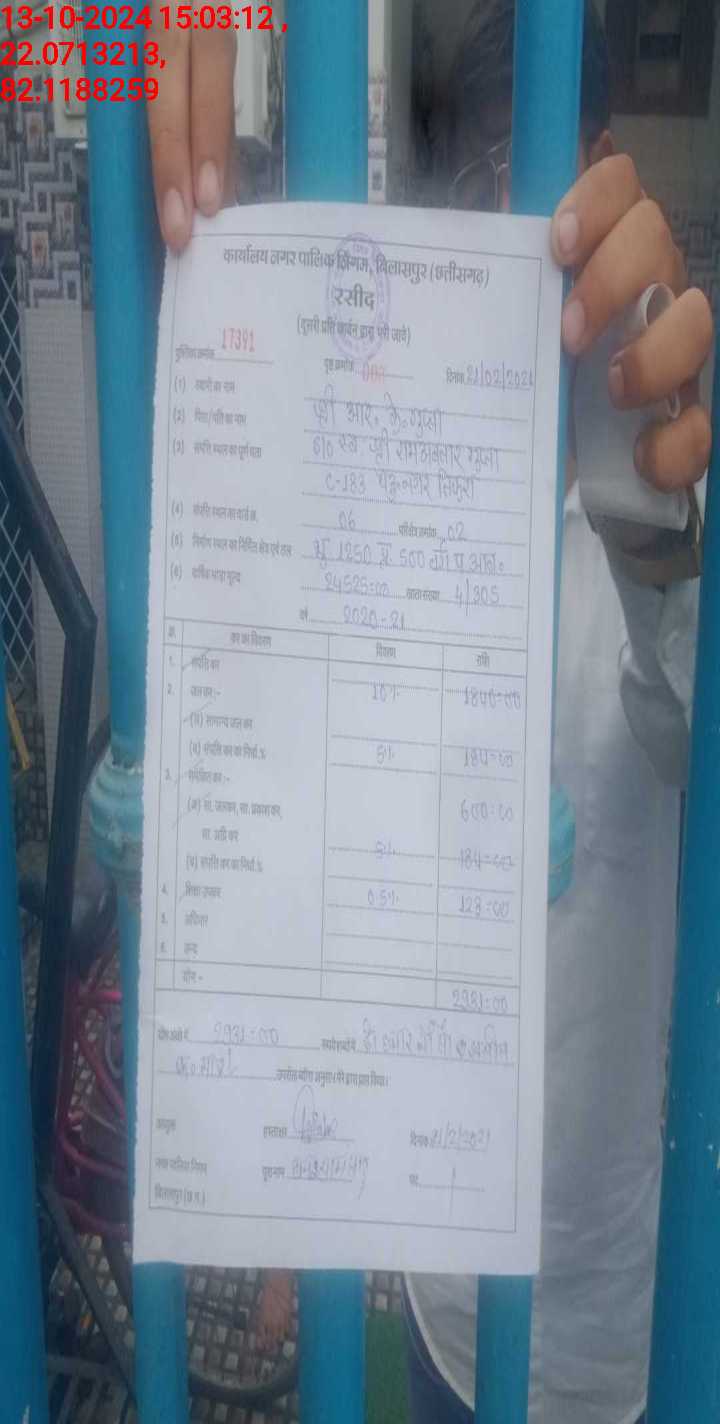 13-10-2024 15:03:12 ,
22.0713213,
82.1188259
कार्यालय नगर पालिक निगम, बिलासपुर (छत्तीसगढ़)
रसीद
(दूसरी प्रति कार्बन द्वारा भरी जावे)
पुस्तिका क्रमांक 17391 पृष्ठ क्रमांक दिनांक 21/02/2021
(1) स्वामी का नाम श्री आर. के. गुप्ता
(2) पिता/पति का नाम S/o स्व. श्री रामअवतार गुप्ता
(3) संपत्ति स्थल का पूर्ण पता C-183 नेहरू नगर तिफरा
(4) संपत्ति स्थल का वार्ड क्र. 06 परिक्षेत्र क्रमांक 02
(5) निर्माण स्थल का निर्मित क्षेत्र एवं तल 1250 500
(6) वार्षिक भाड़ा मूल्य 24525=00 खाता संख्या 4/305
वर्ष 2020-21
क्र. कर का विवरण विवरण राशि
1. संपत्ति कर
2. जल कर :- 10% 1840=00
(अ) सामान्य जल कर
(ब) संपत्ति कर का निर्धा. % 5% 184=00
3. समेकित कर :-
(अ) सा. जलकर, सा. प्रकाश कर, 600=00
सा. अग्नि कर
(ब) संपत्ति कर का निर्धा. % 5% 184=00
4. शिक्षा उपकर 0.5% 123=00
5. अधिभार
6. अन्य
योग - 2931=00
योग अंकों में 2931=00 रूपये शब्दों में दो हजार नौ सौ इकतीस
रू. मात्र
उपरोक्त योग अनुसार मेरे द्वारा प्राप्त किया।
आयुक्त हस्ताक्षर दिनांक 21/2/2021
नगर पालिक निगम पूरा नाम पद
बिलासपुर (छ.ग.)